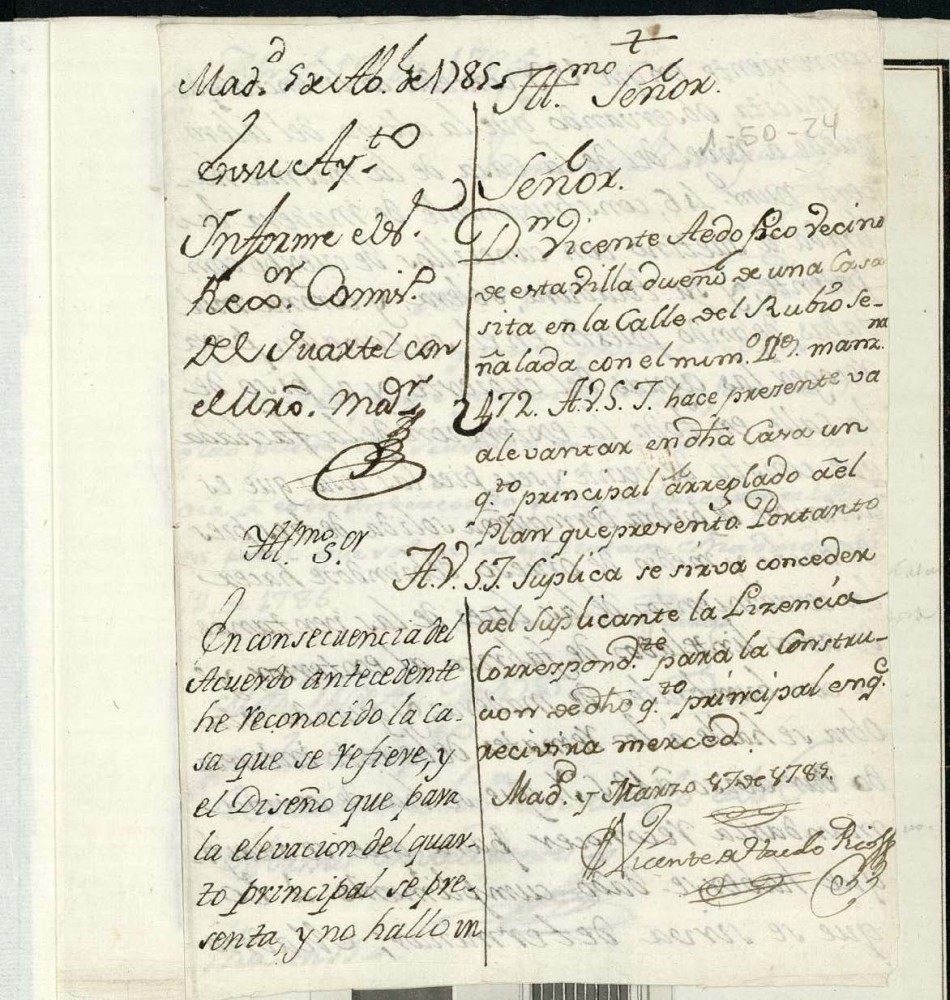 Mad.d 5 de Ab.l de 1785
En su Ay.to
Informe el S.r
Rexor. Comis.o
Del Quartel con
el Mro. Mad.r
Ill.mo S.or
En consecuencia del
Acuerdo antecedente
he reconocido la ca-
sa que se refiere, y
el Diseño que para
la elevacion del quar-
to principal se pre-
senta, y no hallo in
Ill.mo Señor.
1-50-24
Señor.
D.n Vicente Aedo Rico vecino
de esta villa dueño de una Casa
sita en la Calle del Rubio se-
ñalada con el num.o manz.na
472. A.V.S.I. hace presente va
a levantar en dha Casa un
q.to principal arreglado ael
Plan que presenta. Portanto
A.V.S.I. Suplica se sirva conceder
ael suplicante la Lizencia
Correspond.te para la Constru-
cion de dho q.to principal en q.e
recivira merced.
Mad.d y Marzo 17 de 1785.
Vicente de Haedo Rico